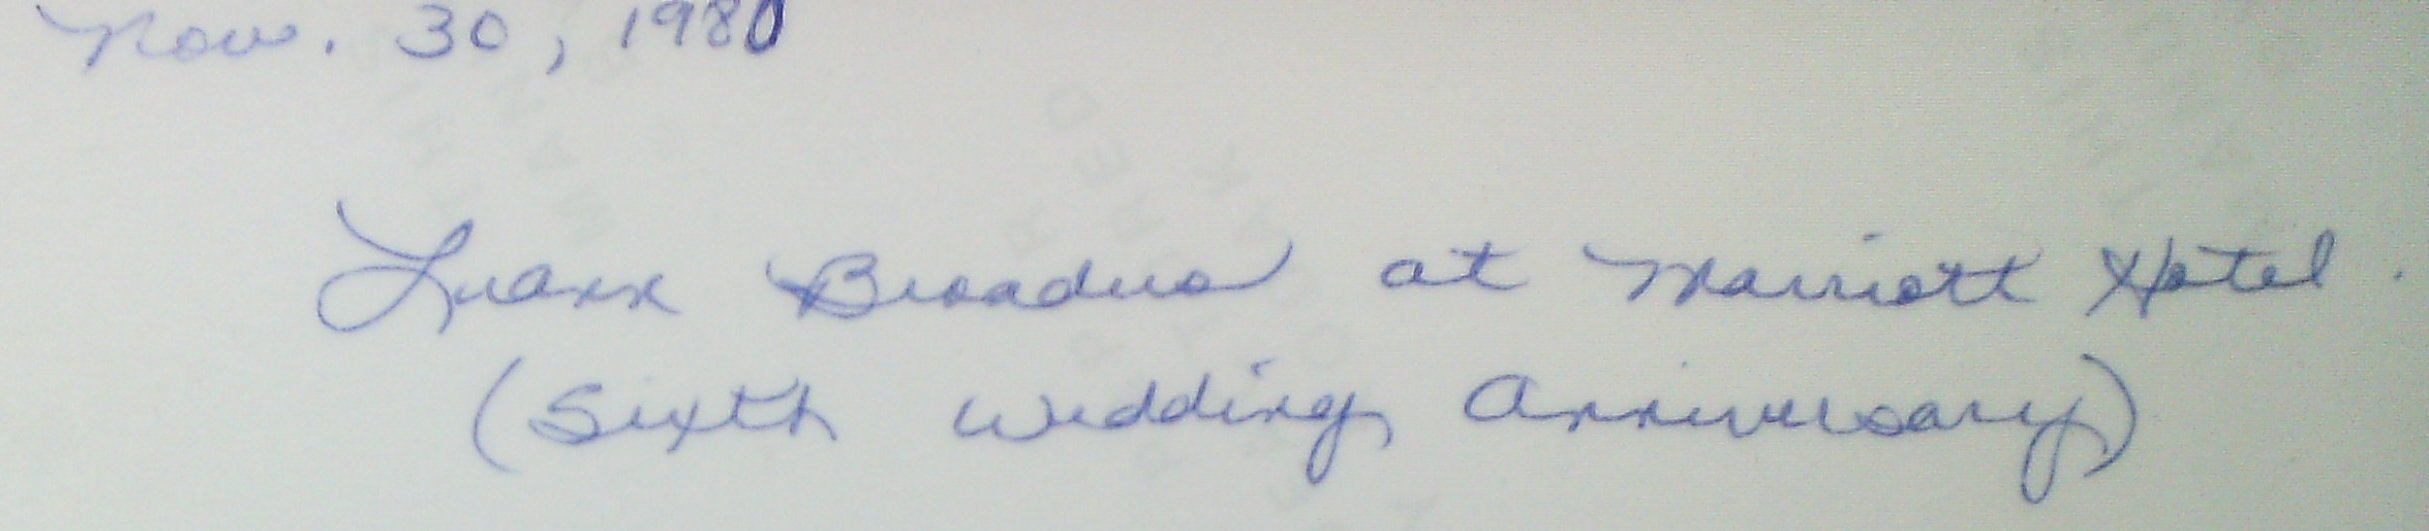 Nov. 30, 1980
Luann Broadus at Marriott Hotel.
(Sixth Wedding Anniversary)